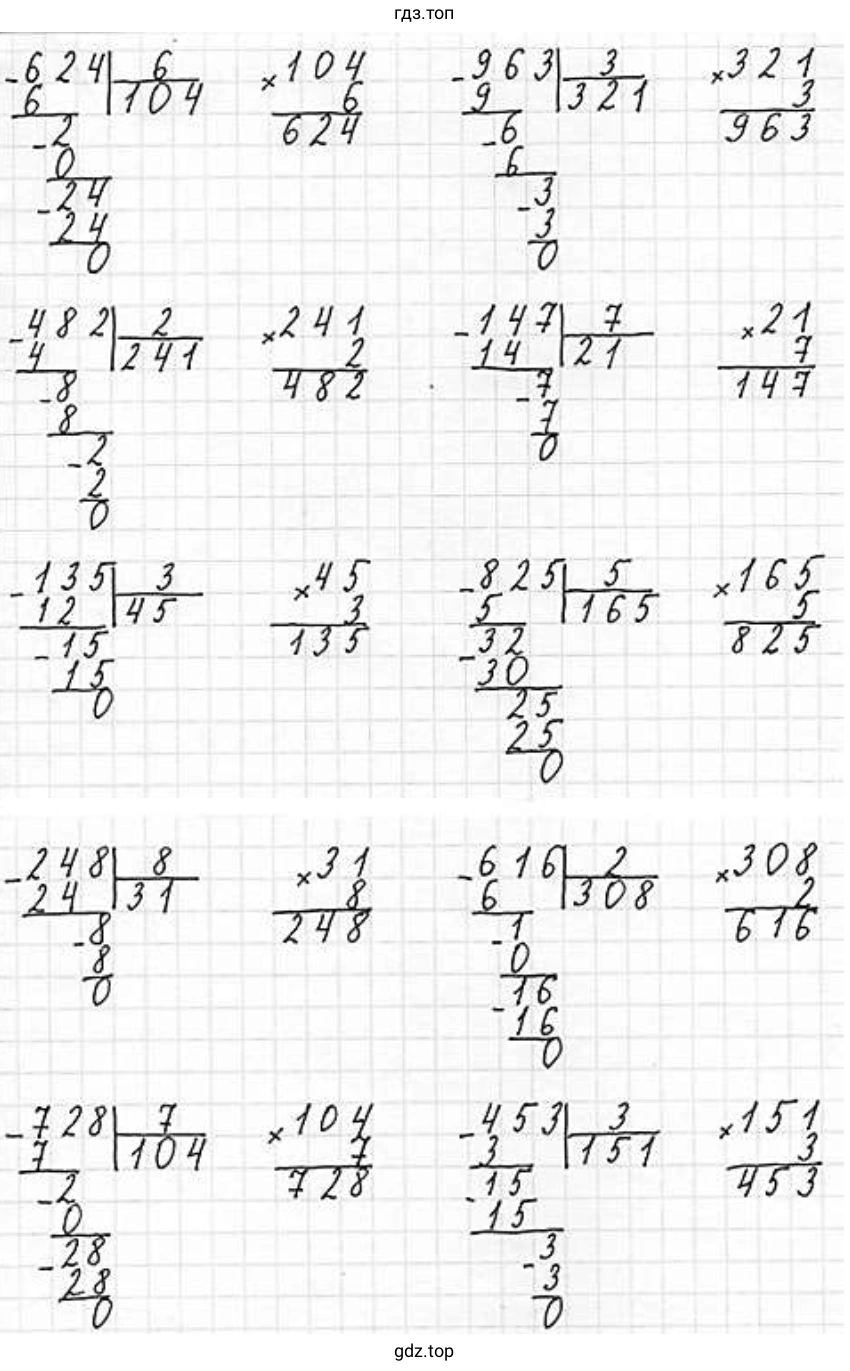 гдз.топ
-624|6 ×104 -963|3 ×321
6 104 6 9 321 3
-2 624 -6 963
0 6
-24 -3
24 3
0 0
-482|2 ×241 -147|7 ×21
4 241 2 14 21 7
-8 482 -7 147
8 7
-2 0
2
0
-135|3 ×45 -825|5 ×165
12 45 3 5 165 5
-15 135 -32 825
15 30
0 25
25
0
-248|8 ×31 -616|2 ×308
24 31 8 6 308 2
-8 248 -1 616
8 0
0 -16
16
0
-728|7 ×104 -453|3 ×151
7 104 7 3 151 3
-2 728 -15 453
0 15
-28 -3
28 3
0 0
gdz.top